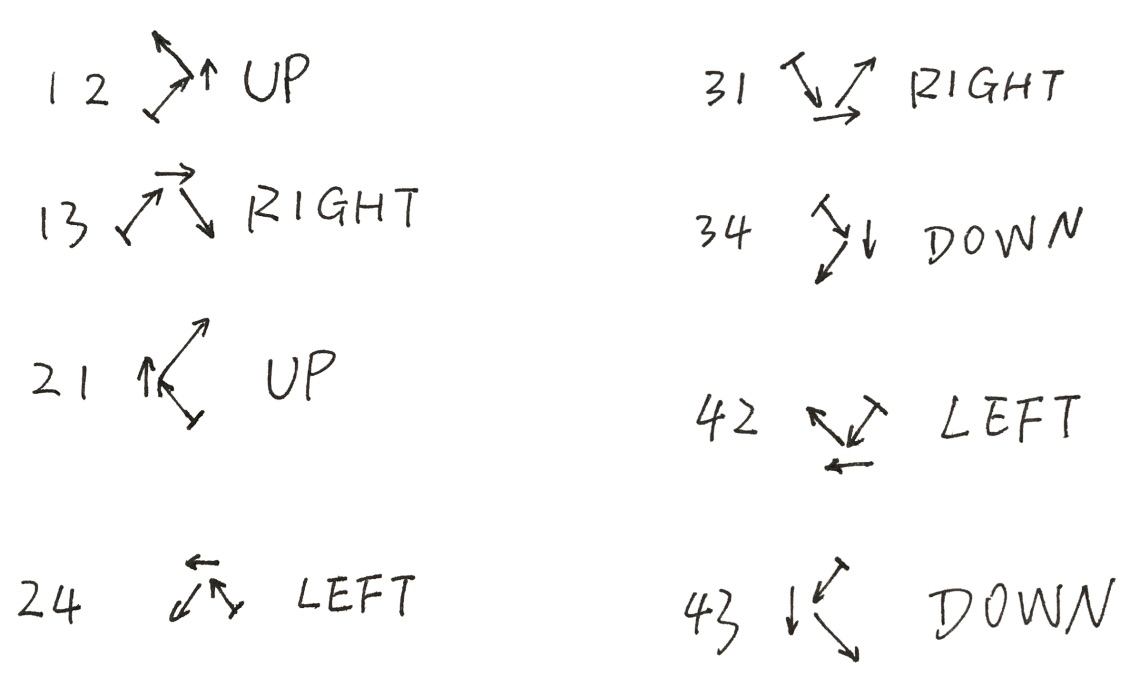 12 UP
13 RIGHT
21 UP
24 LEFT
31 RIGHT
34 DOWN
42 LEFT
43 DOWN